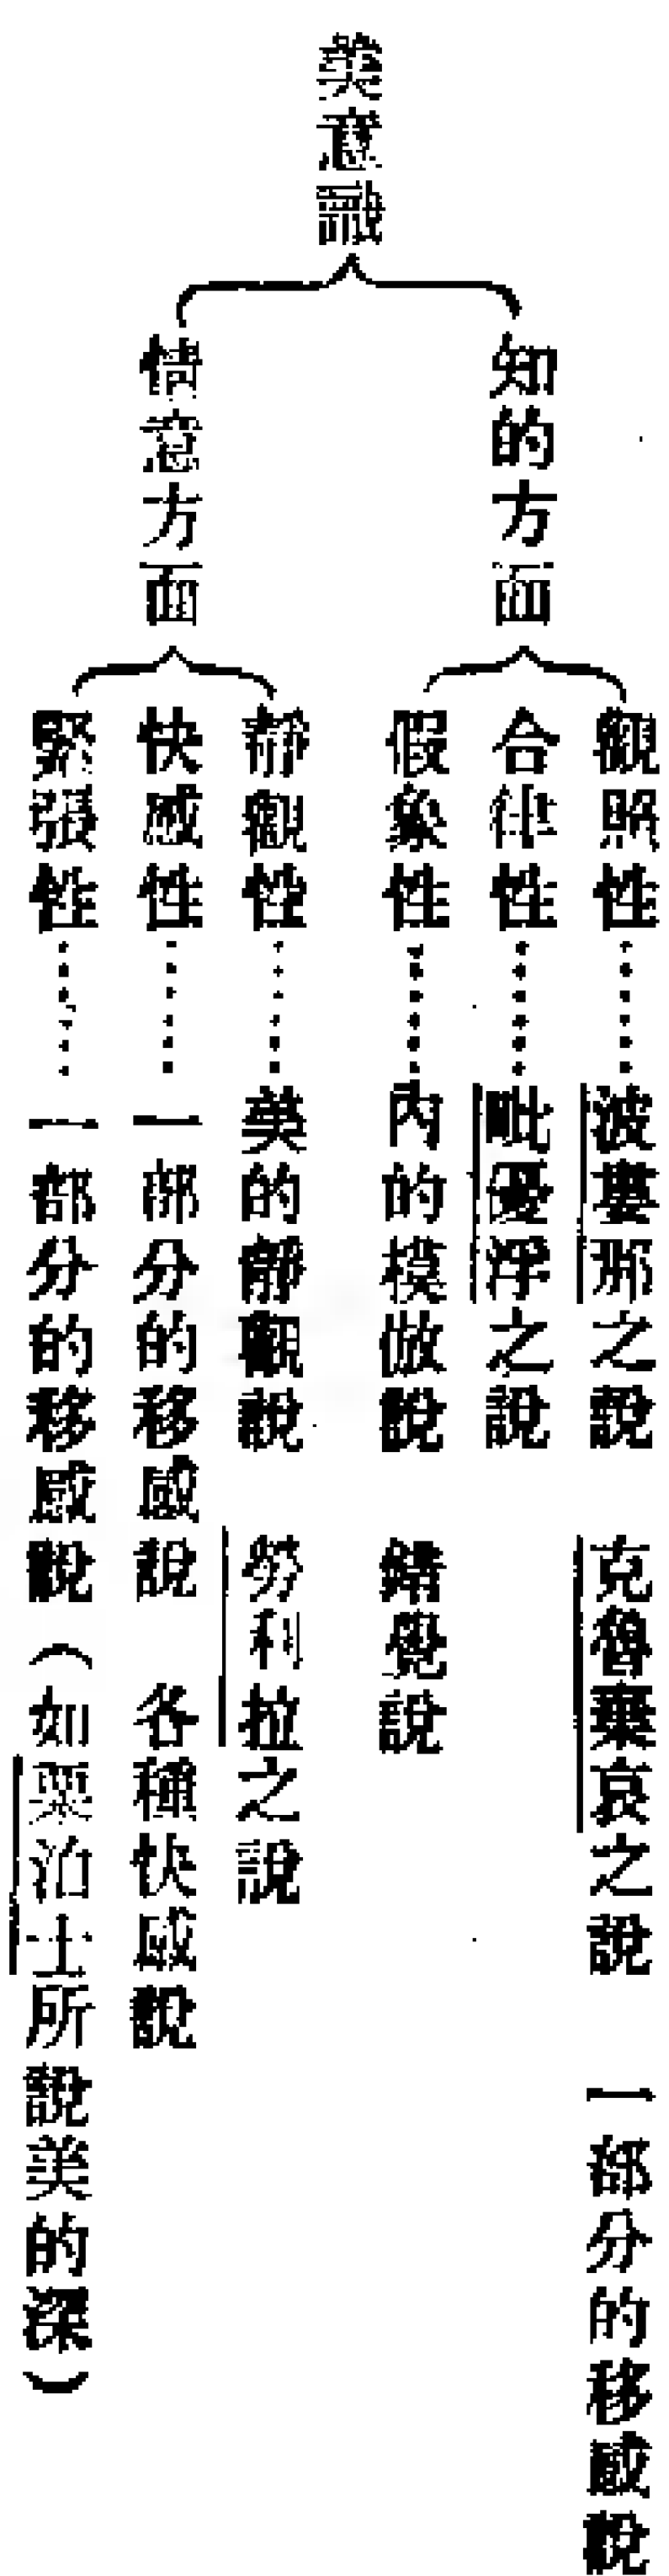 美意識
知的方面
觀照性……波婁那之說 克魯棄哀之說 一部分的移感說
合律性……毗優浮之說
假象性……內的模倣說 錯覺說
情意方面
靜觀性……美的靜觀說 勞利拉之說
快感性……一部分的移感說 各種快感說
緊張性……一部分的移感說(如栗泊士所說美的深)